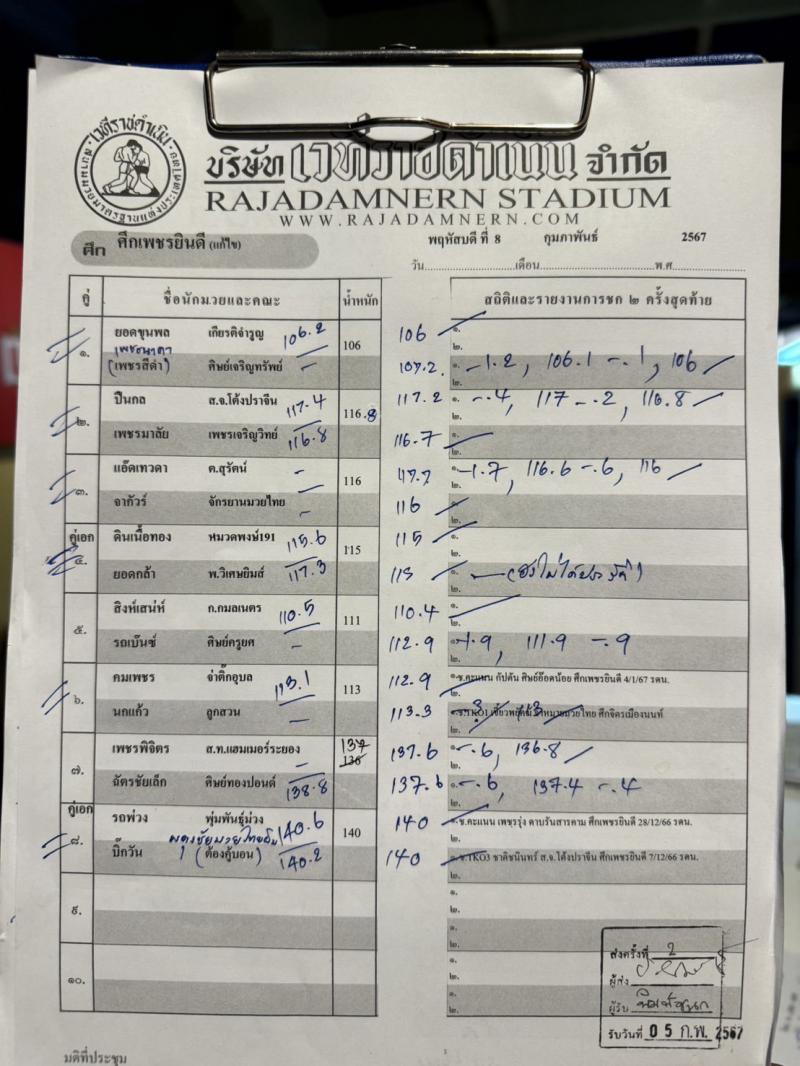 เวทีราชดำเนิน
บริษัท เวทีราชดำเนิน จำกัด
RAJADAMNERN STADIUM
WWW.RAJADAMNERN.COM
ศึก ศึกเพชรยินดี (แก้ไข)
พฤหัสบดี ที่ 8 กุมภาพันธ์ 2567
วัน เดือน พ.ศ
คู่ ชื่อนักมวยและคณะ น้ำหนัก สถิติและรายงานการชก ๒ ครั้งสุดท้าย
๑. ยอดขุนพล เกียรติจำรูญ 106.2 106 106 ๑.
๒.
(เพชรสีดำ) ศิษย์เจริญทรัพย์ - 107.2 ๑. -1.2, 106.1 -.1, 106
๒.
๒. ปืนกล ส.จ.โต้งปราจีน 117.4 116.8 117.2 ๑. -.4, 117 -.2, 116.8
๒.
เพชรมาลัย เพชรเจริญวิทย์ 116.8 116.7 ๑.
๒.
๓. แอ๊ดเทวดา ต.สุรัตน์ - 116 117.7 ๑. -1.7, 116.6 -.6, 116
๒.
จากัวร์ จักรยานมวยไทย - 116 ๑.
๒.
คู่เอก ๔. ดินเนื้อทอง หมวดพงษ์191 115.6 115 115 ๑.
๒.
ยอดกล้า พ.วิเศษยิมส์ 117.3 115 ๑.
๒.
๕. สิงห์เสน่ห์ ก.กมลเนตร 110.5 111 110.4 ๑.
๒.
รถเบ๊นซ์ ศิษย์ครูยศ - 112.9 ๑. -1.9, 111.9 -.9
๒.
๖. คมเพชร จ่าติ๊กอุบล 113.1 113 112.9 ๑.ช.คะแนน กัปตัน ศิษย์อ๊อดน้อย ศึกเพชรยินดี 4/1/67 รดน.
๒.
นกแก้ว ลูกสวน - 113.3 -.3, 113 ศึกจิตรเมืองนนท์
๒.
๗. เพชรพิจิตร ส.ท.แฮมเมอร์ระยอง - 137 136 137.6 ๑. -.6, 136.8
๒.
ฉัตรชัยเล็ก ศิษย์ทองปอนด์ 138.8 137.6 ๑. -.6, 137.4 -.4
๒.
คู่เอก ๘. รถพ่วง พุ่มพันธุ์ม่วง 140.6 140 140 ๑.ช.คะแนน เพชรรุ่ง ดาบรันสารคาม ศึกเพชรยินดี 28/12/66 รดน.
๒.
บิ๊กวัน (ต้องคู้บอน) 140.2 140 ๑.ช.TKO3 ชาติชนินทร์ ส.จ.โต้งปราจีน ศึกเพชรยินดี 7/12/66 รดน.
๒.
๙. ๑.
๒.
๑.
๒.
๑๐. ๑.
๒.
๑.
๒.
ส่งครั้งที่ 2
ผู้ส่ง
ผู้รับ
รับวันที่ 05 ก.พ. 2567
มติที่ประชุม